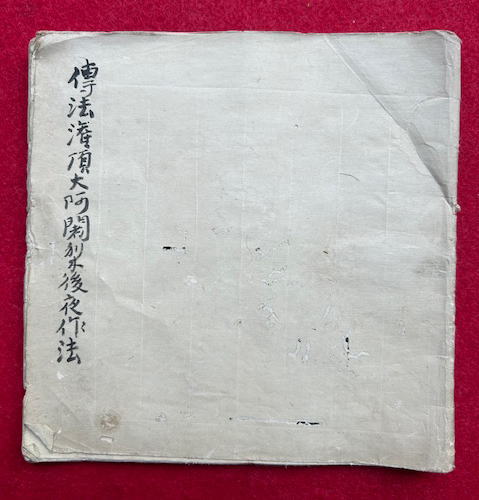 傳法灌頂大阿闍梨後夜作法